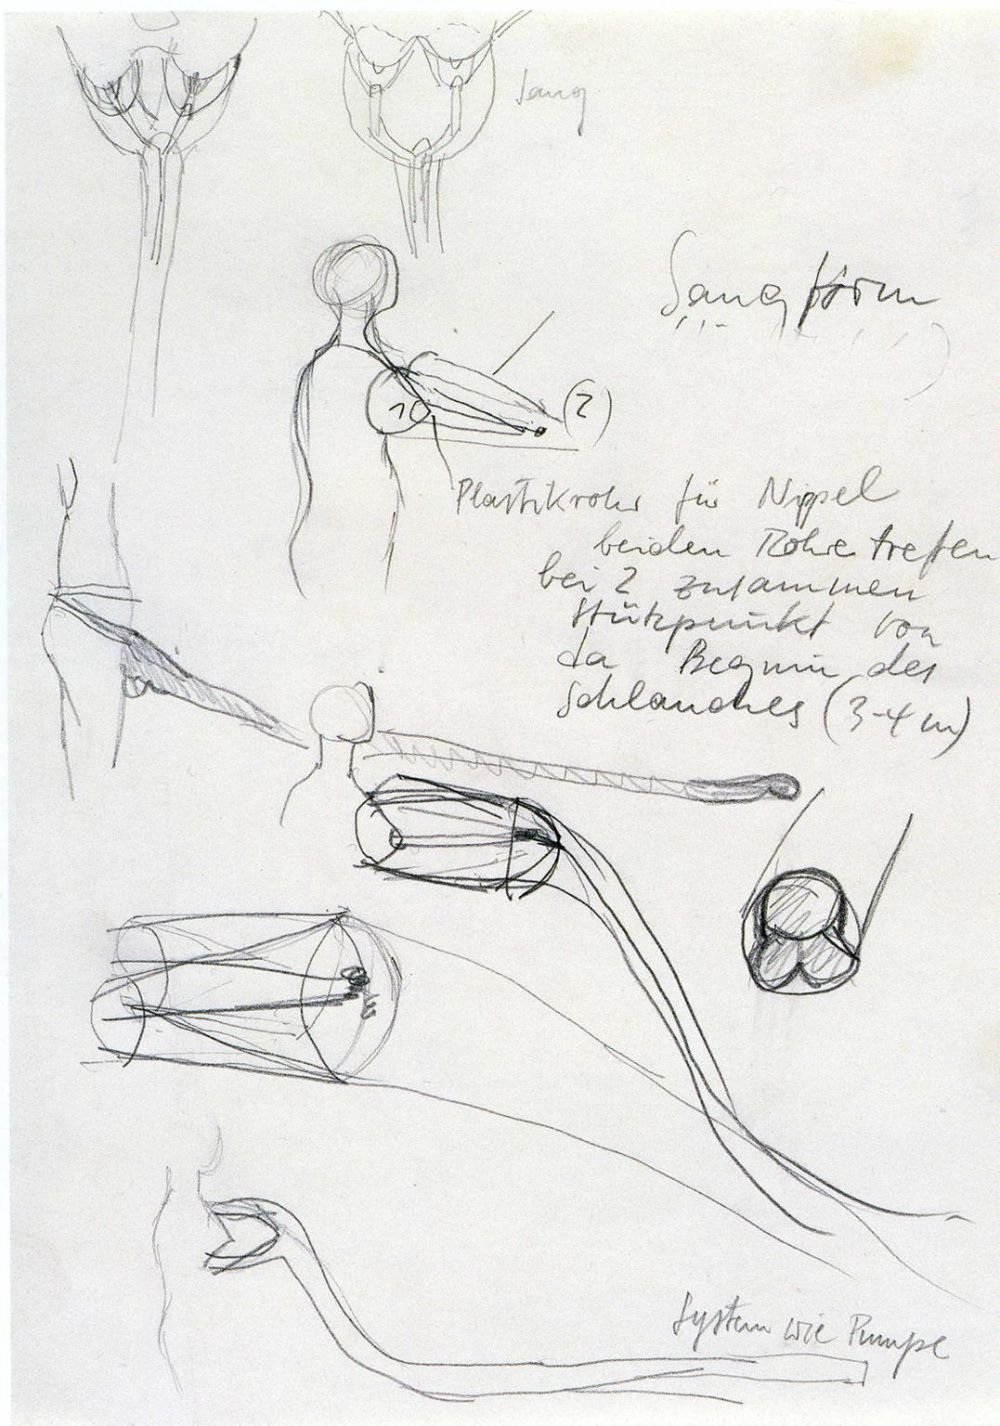 Saug
Saugform
1
(2)
Plastikrohr für Nippel
beiden Rohre treffen
bei 2 zusammen
Stützpunkt von
da Beginn des
Schlauches (3-4 m)
System wie Pumpe